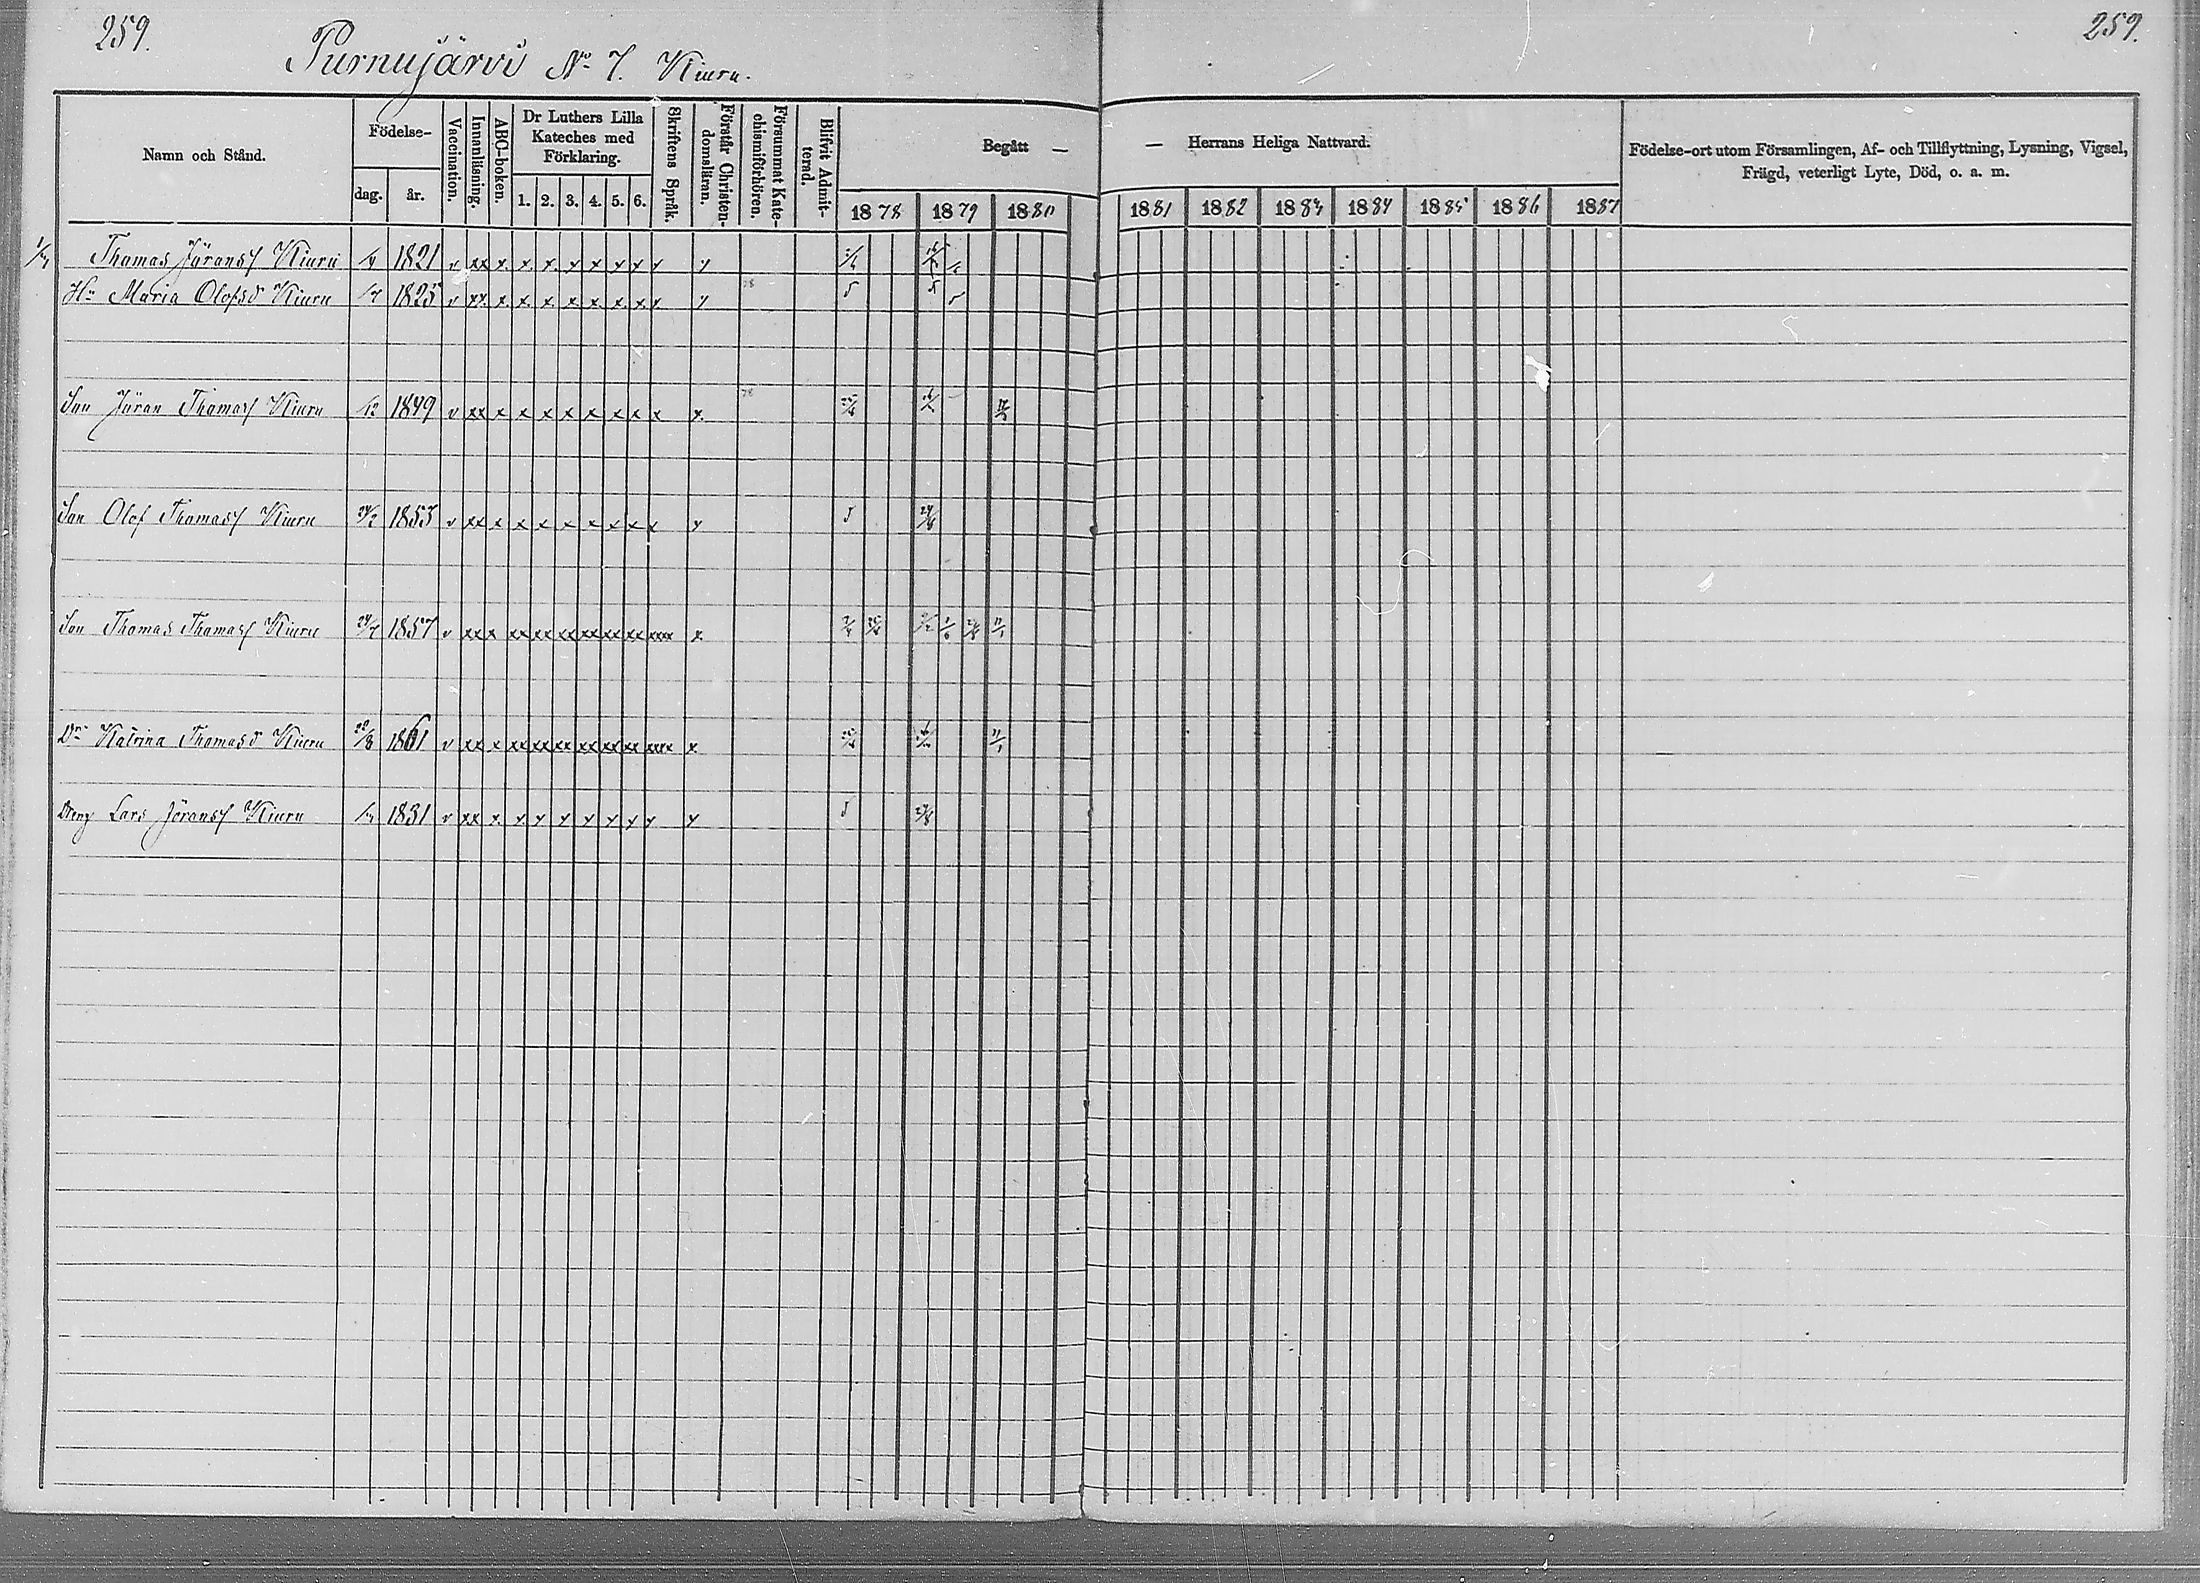 259.
259.
Purnujärvi No 7. Kiuru.
Namn och Stånd.
Födelse-
dag.
år.
Vaccination.
Innanläsning.
ABC-boken.
Dr Luthers Lilla
Kateches med
Förklaring.
1. 2. 3. 4. 5. 6.
Skriftens Språk.
Förstår Christen-
domsläran.
Försummat Kate-
chismiförhören.
Blifvit Admit-
terad.
Begått —
— Herrans Heliga Nattvard.
1878 1879 1880 1881 1882 1883 1884 1885 1886 1887
Födelse-ort utom Församlingen, Af- och Tillflyttning, Lysning, Vigsel,
Frägd, veterligt Lyte, Död, o. a. m.
Thomas Jöranss Kiuru 1821 v xx x. x. x. x x x x x x
Hu Maria Olofsd Kiuru 1825 v xx. x. x. x. x. x. x. x x x
Son Jöran Thomass Kiuru /12 1849 v xx x x x x x x x x x.
Son Olof Thomass Kiuru 1853 v xx x x x x x x x x x
Son Thomas Thomass Kiuru 1857 v xx x xx xx xx xx xx xx xxxx x 11/1
Dr Katrina Thomasd Kiuru 1861 v xx x xx xx xx xx xx xx xxxx x 11/1
Dreng Lars Jöranss Kiuru 1831 v xx x. x x x x x x x x